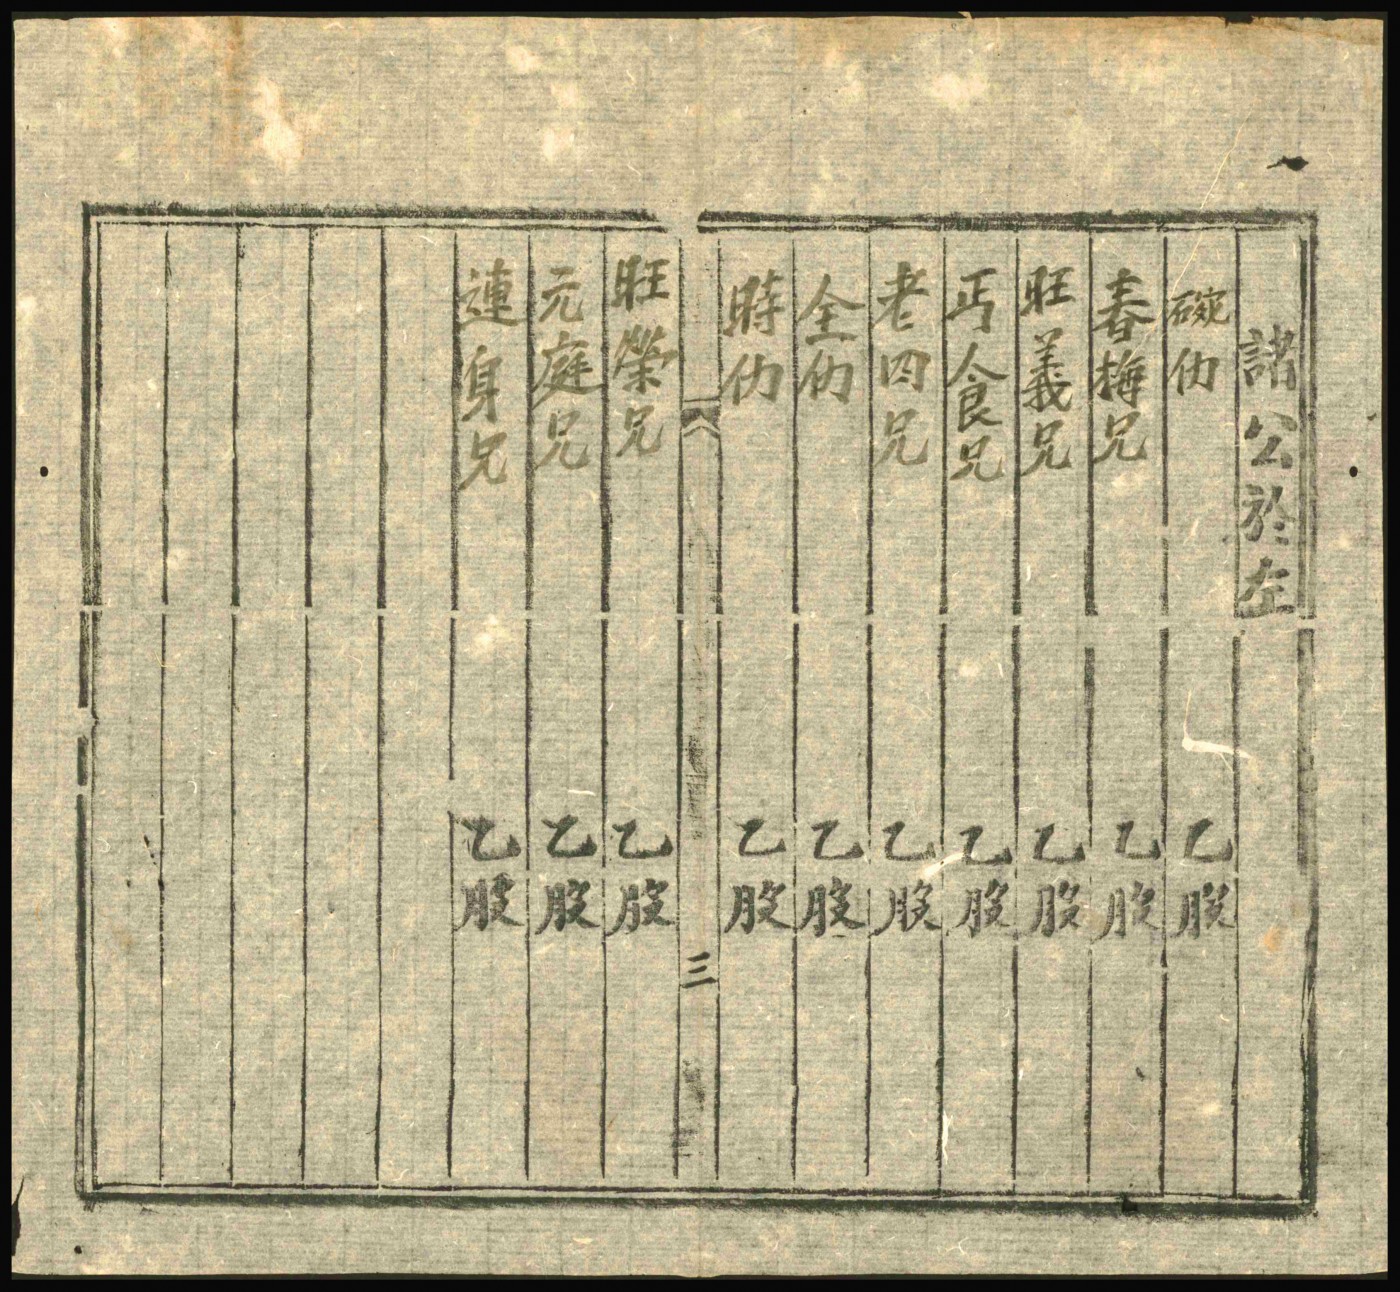 諸公於左
碗伯 乙股
春梅兄 乙股
旺義兄 乙股
丐食兄 乙股
老四兄 乙股
全伯 乙股
時伯 乙股
三
旺榮兄 乙股
元庭兄 乙股
連身兄 乙股